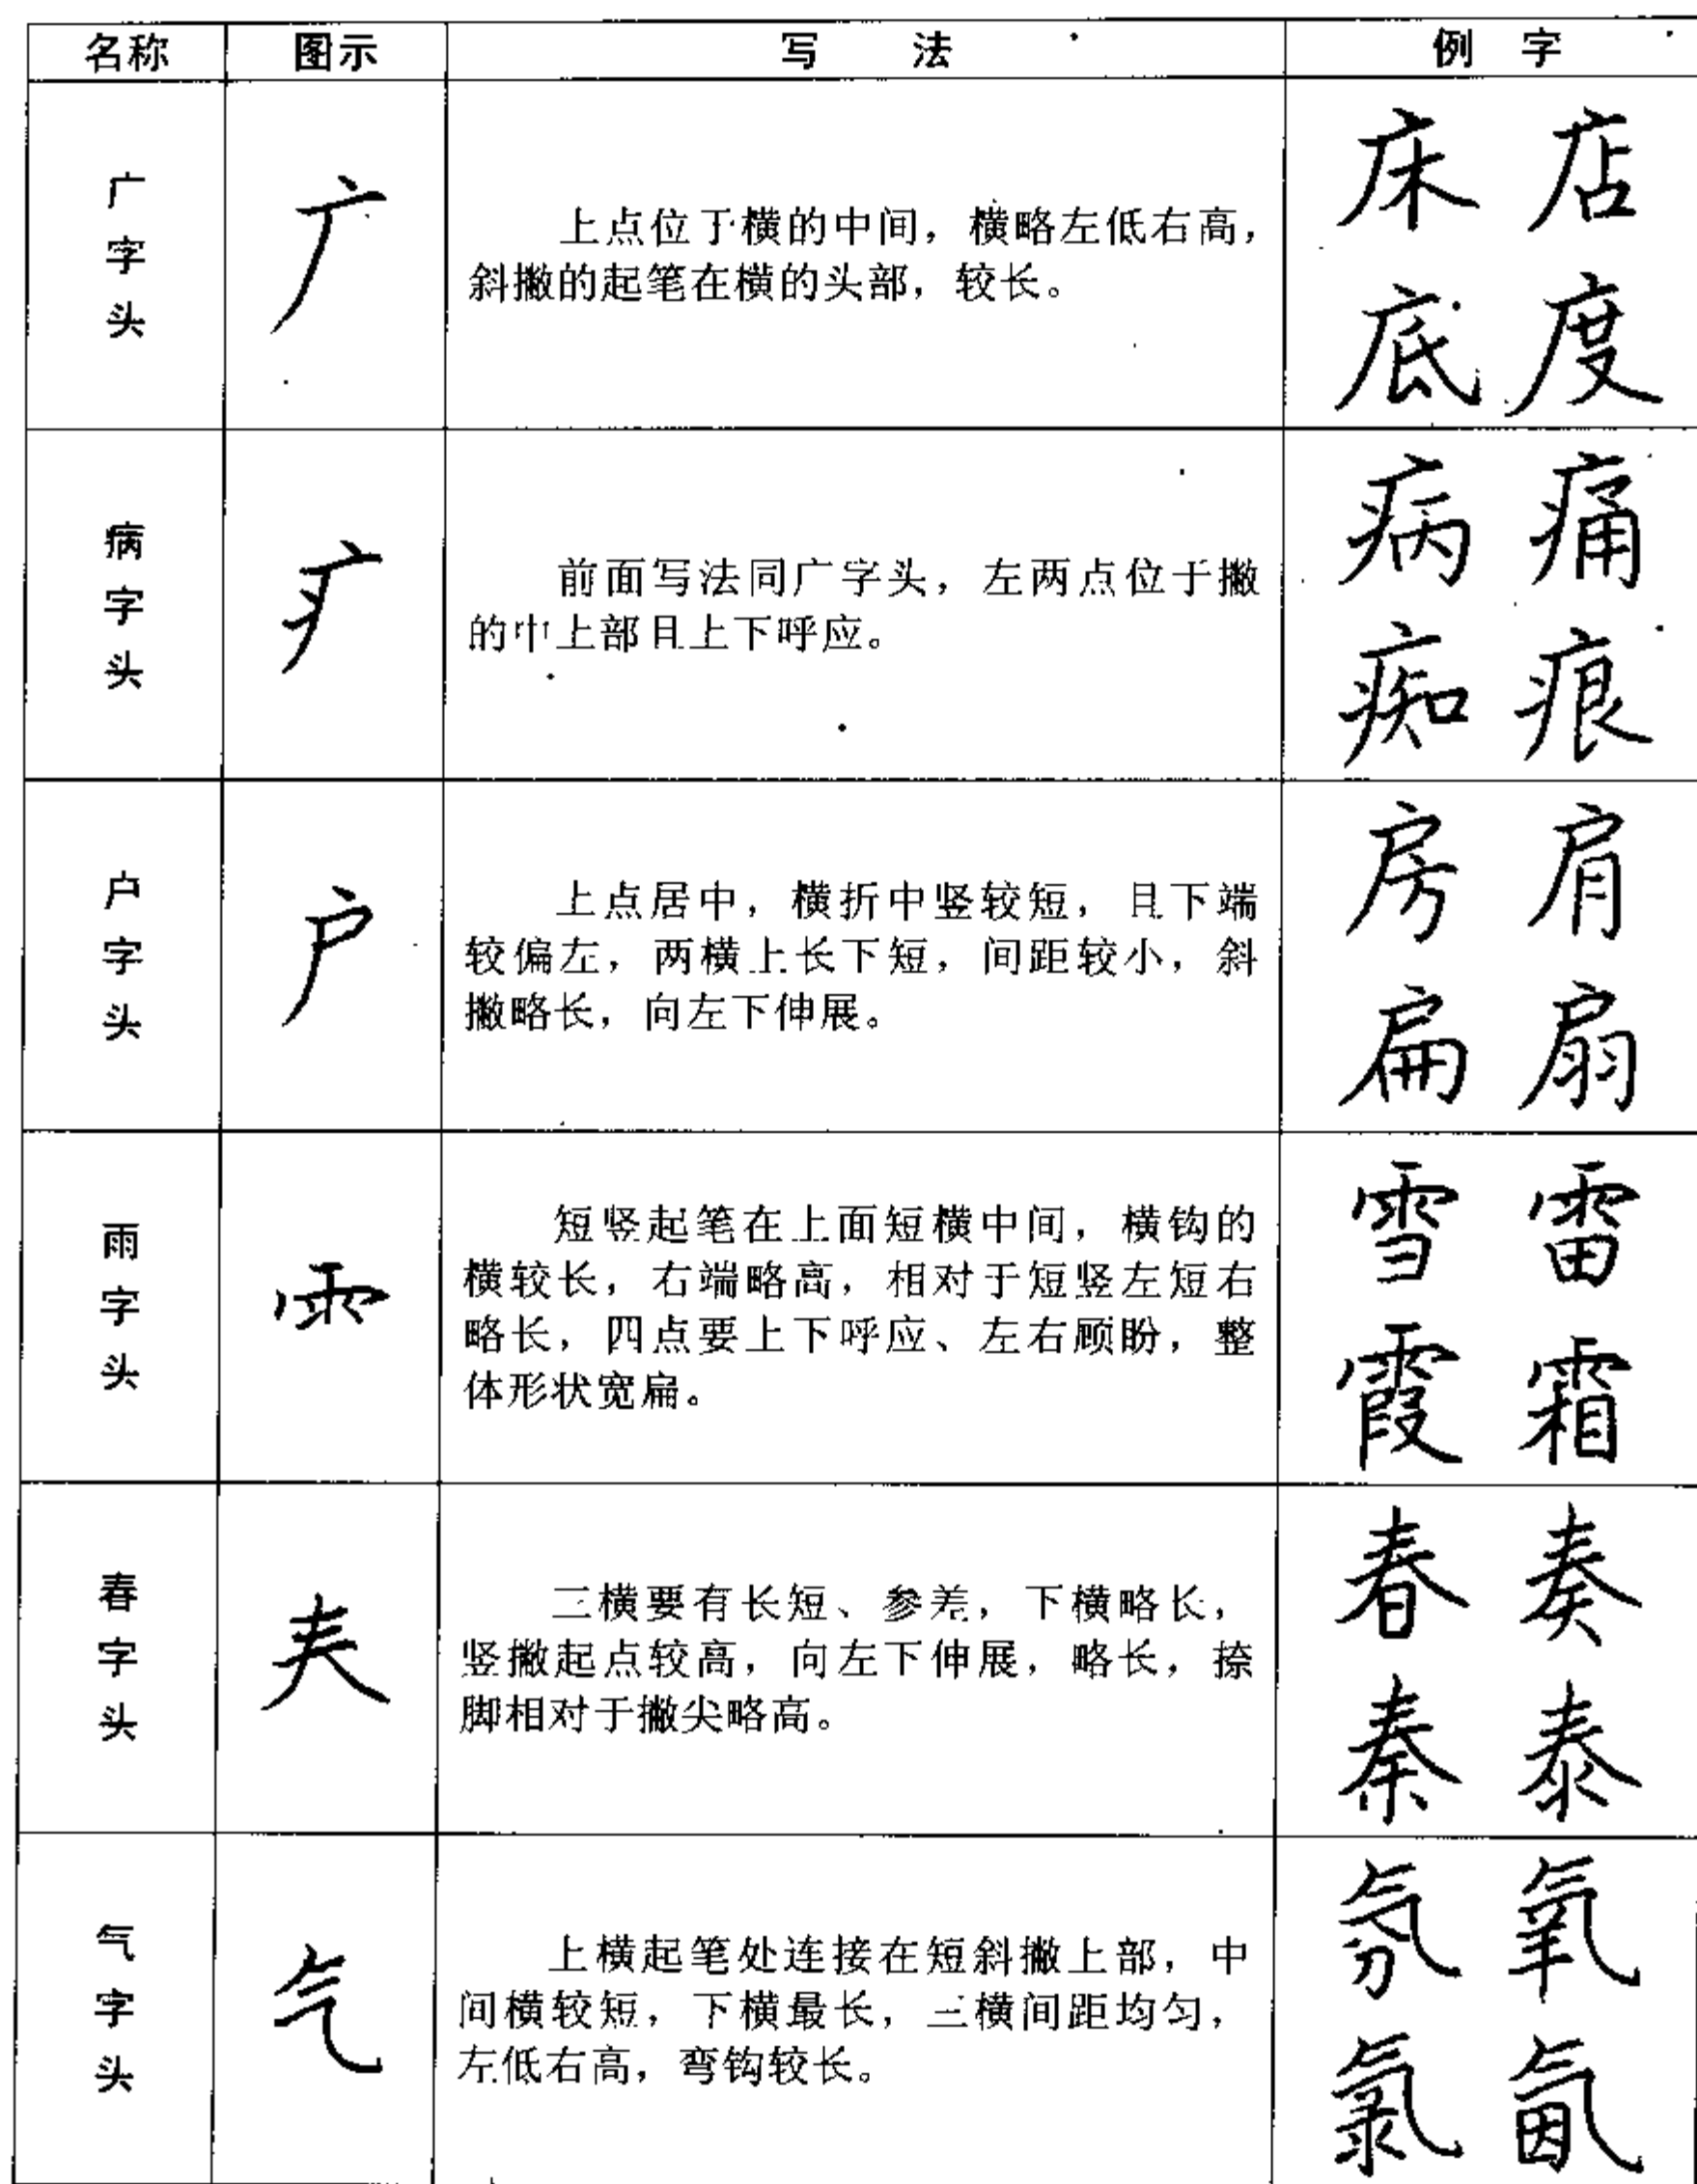 名称 图示 写 法 例 字
广字头 广 上点位于横的中间，横略左低右高，
斜撇的起笔在横的头部，较长。
床 店
底 度
病字头 疒 前面写法同广字头，左两点位于撇
的中上部且上下呼应。
病 痛
痴 痕
户字头 户 上点居中，横折中竖较短，且下端
较偏左，两横上长下短，间距较小，斜
撇略长，向左下伸展。
房 肩
扁 扇
雨字头 ⻗ 短竖起笔在上面短横中间，横钩的
横较长，右端略高，相对于短竖左短右
略长，四点要上下呼应、左右顾盼，整
体形状宽扁。
雪 雷
霞 霜
春字头 𡗗 三横要有长短、参差，下横略长，
竖撇起点较高，向左下伸展，略长，捺
脚相对于撇尖略高。
春 奏
秦 泰
气字头 气 上横起笔处连接在短斜撇上部，中
间横较短，下横最长，三横间距均匀，
左低右高，弯钩较长。
氛 氧
氯 氤